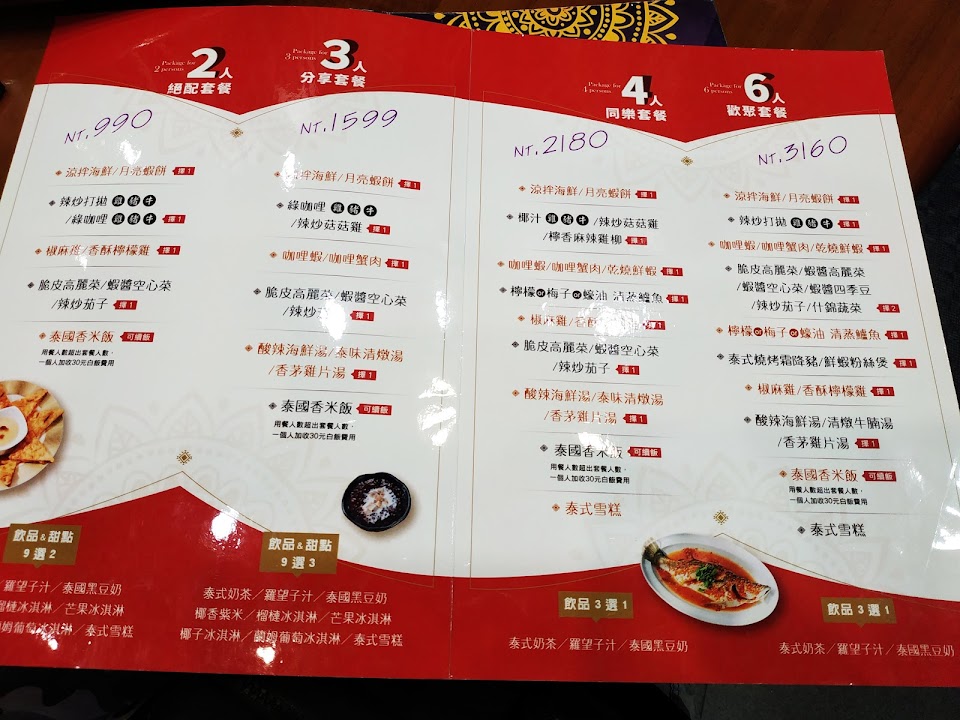 Package for
2 persons
2人
絕配套餐
NT.990
涼拌海鮮/月亮蝦餅 擇1
辣炒打拋 雞 豬 牛
/綠咖哩 雞 豬 牛 擇1
椒麻雞/香酥檸檬雞 擇1
脆皮高麗菜/蝦醬空心菜
/辣炒茄子 擇1
泰國香米飯 可續飯
用餐人數超出套餐人數，
一個人加收30元白飯費用
飲品&甜點
9選2
/羅望子汁/泰國黑豆奶
榴槤冰淇淋/芒果冰淇淋
葡萄冰淇淋/泰式雪糕
Package for
3 persons
3人
分享套餐
NT.1599
涼拌海鮮/月亮蝦餅 擇1
綠咖哩 雞 豬 牛
/辣炒菇菇雞 擇1
咖哩蝦/咖哩蟹肉 擇1
脆皮高麗菜/蝦醬空心菜
/辣炒 擇1
酸辣海鮮湯/泰味清燉湯
/香茅雞片湯 擇1
泰國香米飯 可續飯
用餐人數超出套餐人數，
一個人加收30元白飯費用
飲品&甜點
9選3
泰式奶茶/羅望子汁/泰國黑豆奶
椰香紫米/榴槤冰淇淋/芒果冰淇淋
椰子冰淇淋/蘭姆葡萄冰淇淋/泰式雪糕
Package for
4 persons
4人
同樂套餐
NT.2180
涼拌海鮮/月亮蝦餅 擇1
椰汁 雞 豬 牛/辣炒菇菇雞
/檸香麻辣雞柳 擇1
咖哩蝦/咖哩蟹肉/乾燒鮮蝦 擇1
檸檬or梅子or蠔油 清蒸鱸魚
椒麻雞/香酥 擇1
脆皮高麗菜/蝦醬空心菜
/辣炒茄子 擇1
酸辣海鮮湯/泰味清燉湯
/香茅雞片湯 擇1
泰國香米飯 可續飯
用餐人數超出套餐人數，
一個人加收30元白飯費用
泰式雪糕
飲品3選1
泰式奶茶/羅望子汁/泰國黑豆奶
Package for
6 persons
6人
歡聚套餐
NT.3160
涼拌海鮮/月亮蝦餅 擇1
辣炒打拋 雞 豬 牛 擇1
咖哩蝦/咖哩蟹肉/乾燒鮮蝦 擇1
脆皮高麗菜/蝦醬高麗菜
/蝦醬空心菜/蝦醬四季豆
/辣炒茄子/什錦蔬菜 擇2
檸檬or梅子or蠔油 清蒸鱸魚 擇1
泰式燒烤霜降豬/鮮蝦粉絲煲 擇1
椒麻雞/香酥檸檬雞 擇1
酸辣海鮮湯/清燉牛腩湯
/香茅雞片湯 擇1
泰國香米飯 可續飯
用餐人數超出套餐人數，
一個人加收30元白飯費用
泰式雪糕
飲品3選1
泰式奶茶/羅望子汁/泰國黑豆奶